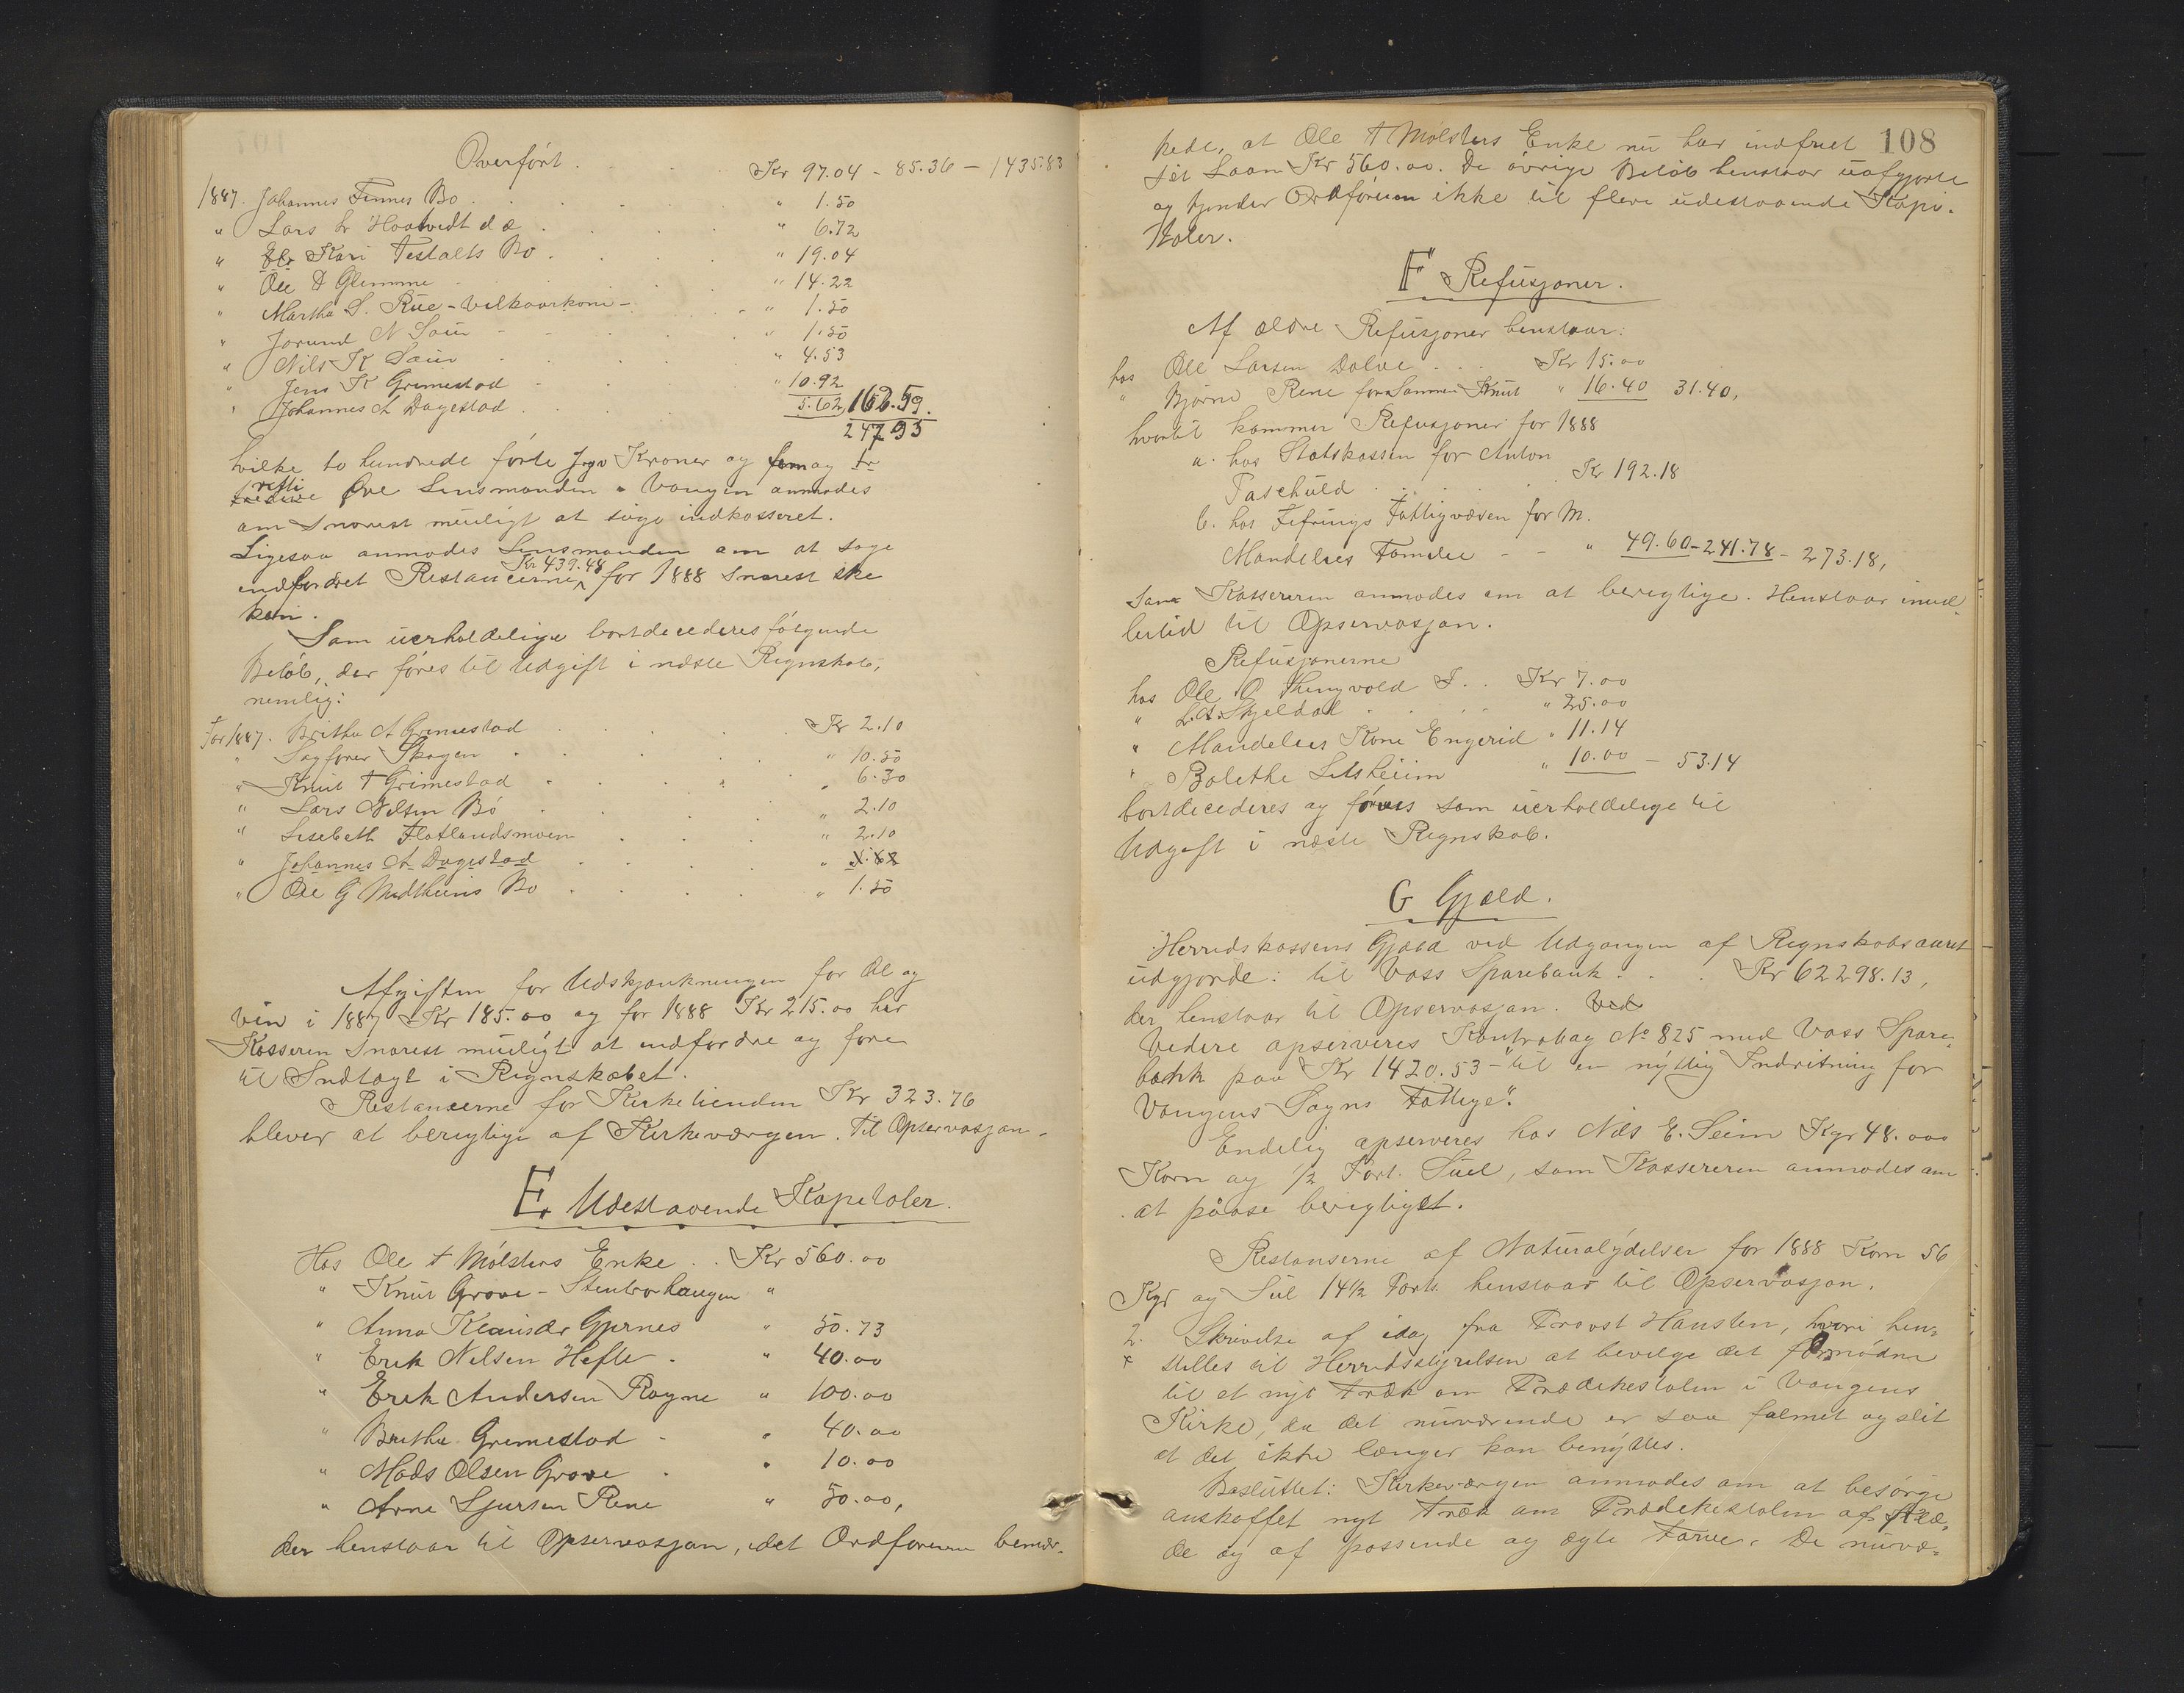 Overført . . . Kr 97.04 - 85.36 - 1435.83
1887. Johannes Finnes Bo . . . " 1.50
" Lars L Haatvedt d æ . . . " 6.72
" Kari Testalts Bo . . . " 19.04
" Ole D Glimme . . . " 14.22
" Martha S. Rue - Vilkaarkone - . . " 1.50
" Jorund N Saue - - . . " 1.50
" Nils K Saue . . . " 4.53
" Jens K Grimestad . . . " 10.92
" Johannes A Dagestad . . . 5.62 162.59.
247.95
hvilke to hundrede førti syv Kroner og fem og
Øre Lensmanden i Vangen anmodes
om snarest muligt at søge indkasseret.
Ligesaa anmodes Lensmanden om at søge
indfordret Restancerne Kr 439.48 for 1888 snarest ske
kan.
Som uerholdelige bortdecideres følgende
Beløb, der føres til Udgift i næste Regnskab,
nemlig:
for 1887. Britha A Grimestad . . . Kr 2.10
" Sagfører Skogen . . . " 10.50
" Knut T Grimestad . . . " 6.30
" Lars Nilsen Bø . . . " 2.10
" Lisebeth Flatlandsmoen . . . " 2.10
" Johannes A Dagestad . . . " 5.62
" Ole G Midtheims Bo . . . " 1.50
Afgiften for Udskjænkningen for Øl og
Vin i 1887 Kr 185.00 og for 1888 Kr 215.00 har
Kasseren snarest muligt at indfordre og føre
til Indtægt i Regnskabet.
Restancerne for Kirketienden Kr 323.76
blever at berigtige af Kirkeværgen. Til Opservasjon -
E. Udestaaende Kapitaler.
Hos Ole T Mølsters Enke . . Kr 560.00
" Knut Grove - Stenbrohaugen "
" Anna Klausdr Gjernes " 50.73
" Erik Nilsen Hefte - " 40.00
" Erik Andersen Rogne " 100.00
" Britha Grimestad - " 40.00
" Mads Olsen Grove . " 10.00
" Arne Sjursen Rene " 50.00,
der henstaar til Opservasjon, idet Ordføreren bemær-
108
kede, at Ole T Mølsters Enke nu har indfriet
sit Laan Kr 560.00. De øvrige Beløb henstaar uafgjorte
og kjender Ordføreren ikke til flere udestaaende Kapi-
taler.
F Refusjoner.
Af ældre Refusjoner henstaar:
hos Ole Larsen Dolve . . . Kr 15.00
" Bjørne Rene for Sønnen Knut " 16.40 31.40,
hvortil kommer Refusjoner for 1888
a. hos Statskassen for Anton
Paschuld . . . Kr 192.18
b. hos Fefrings Fattigvæsen for M.
Mandelses Familie - - " 49.60 - 241.78 - 273.18,
som Kassereren anmodes om at berigtige. Henstaar imid-
lertid til Opservasjon.
Refusjonerne
hos Ole O Thungvold S. . . Kr 7.00
" L. A. Skjeldal . . . " 25.00
" Mandelses Kone Engerid " 11.14
" Bolethe Litsheim " 10.00 - 53.14
bortdecideres og føres som uerholdelige til
Udgift i næste Regnskab.
G Gjæld.
Herredskassens Gjæld ved Udgangen af Regnskabsaaret
udgjorde: til Voss Sparebank . . . Kr 62298.13,
der henstaar til Opservasjon. Ved
Vedere opserveres Kontrabog No 825 med Voss Spare-
bank paa Kr 1420.53 - "til en nyttig Indretning for
Vangens Sogns Fattige".
Endelig opserveres hos Nils E. Seim Kgr 48.000
Korn og 1/2 Fort. Suel, som Kassereren anmodes om
at paase berigtiget.
Restanserne af Naturalydelser for 1888 Korn 56
Kgr og Sul 14 1/2 Fort. henstaar til Opservasjon.
2. Skrivelse af idag fra Provst Hansten, hvori hen-
stilles til Herredsstyrelsen at bevilge det fornødne
til et nyt Træk om Prædikestolen i Vangens
Kirke, da det nuværende er saa falmet og slit
at det ikke længer kan benyttes.
Besluttet: Kirkeværgen anmodes om at besørge
anskaffet nyt Træk om Prædikestolen af Klæ-
de og af passende og ægte Farve. De nuvæ-